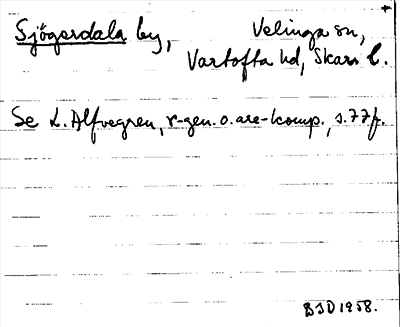 Sjögerdala by, Velinga sn,
Vartofta hd, Skarab. l.
Se L. Alfvegren, r-gen. o. are-komp., s. 77f.
BJD 1958.